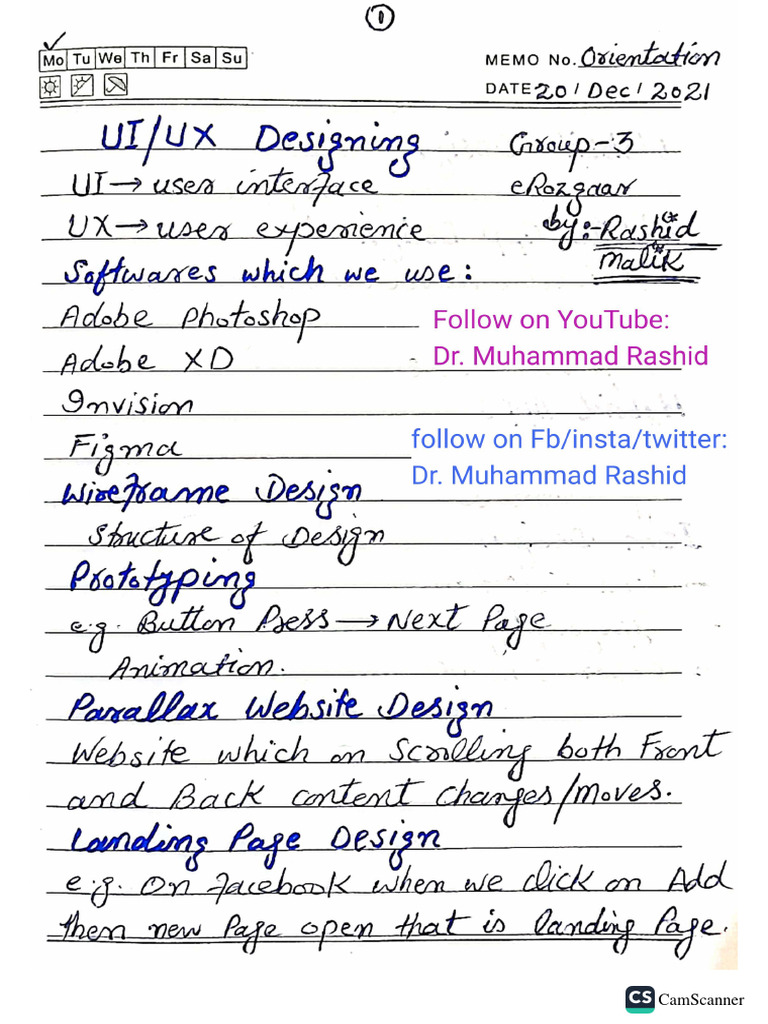 1
Mo Tu We Th Fr Sa Su
MEMO No. Orientation
DATE 20 / Dec / 2021
UI/UX Designing Group-3
UI→ user interface eRozgaar
UX→ user experience by:-Rashid
Malik
Softwares which we use:
Adobe Photoshop
Follow on YouTube:
Adobe XD
Dr. Muhammad Rashid
Invision
Figma
follow on Fb/insta/twitter:
Dr. Muhammad Rashid
Wireframe Design
Structure of Design
Prototyping
e.g. Button Press → Next Page
Animation.
Parallax Website Design
Website which on Scrolling both Front
and Back content changes/moves.
Landing Page Design
e.g. On facebook when we click on Add
then new Page open that is landing Page.
CS CamScanner